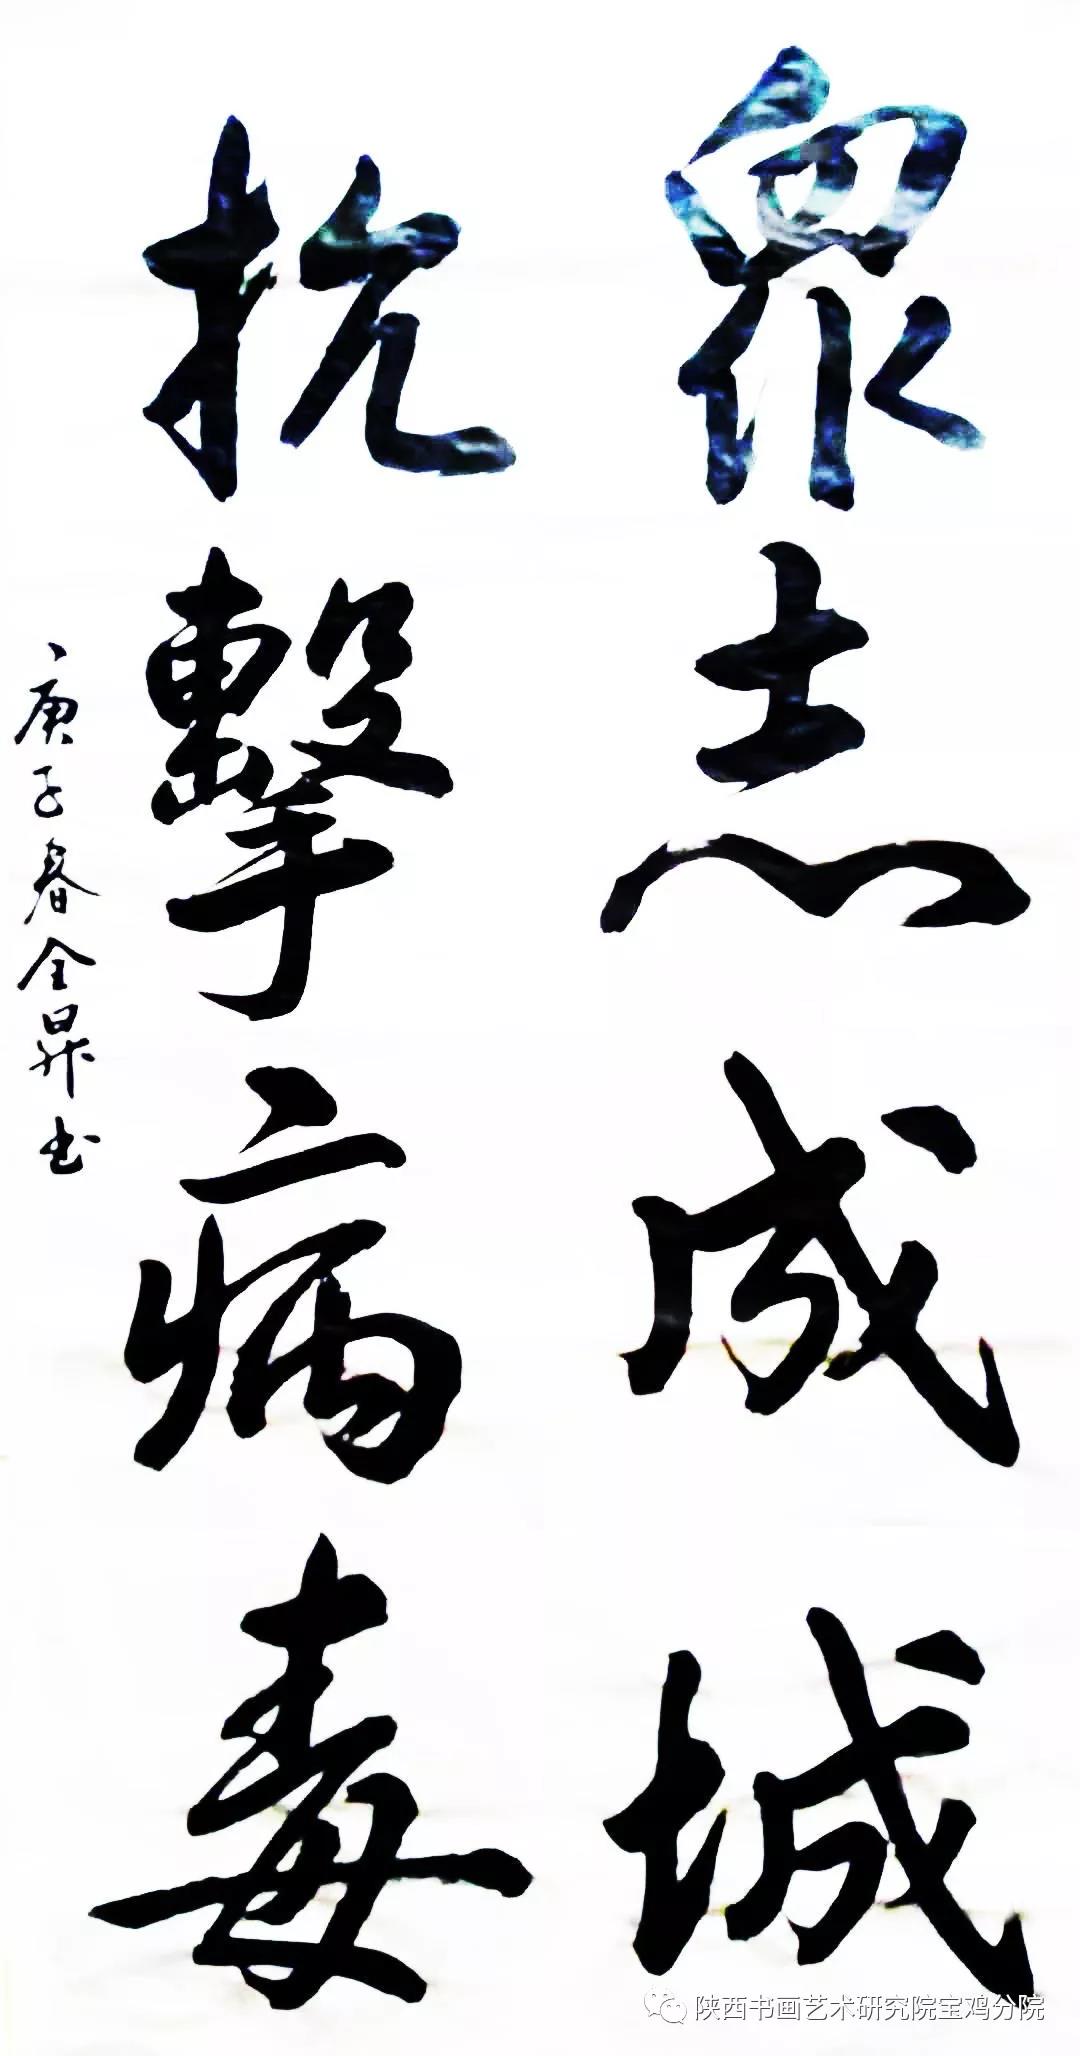 眾志成城
抗擊病毒
庚子春全昇书
陕西书画艺术研究院宝鸡分院